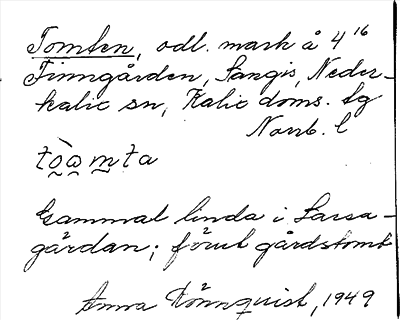 Tomten, odl. mark å 4¹⁶
Finngården, Sangis, Neder-
kalix sn, Kalix doms. tg
Norrb. l
tò̰a̰m̰ta
Gammal linda i Larsa-
gårdan; förut gårdstomt
Anna Rönnquist, 1949